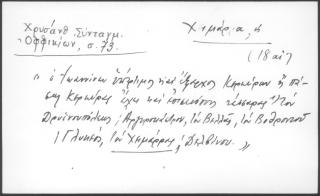 Χρυσάνθ. Σύνταγμ.
Ὀφφικίων, σ. 79.
Χιμάρρα, ἡ
(18 αἰ)
" ὁ Ἰωαννίνων ὑπέρτιμος καὶ ἔξαρχος
Κερκύρας ἔχει καὶ ἐπισκόπους τέσσαρας· τὸν
Δρυϊνουπόλεως, Ἀργυροκάστρου, τὸν Βελλᾶς, τὸν Βοθροντοῦ
Γλυκέος, τὸν Χειμάρρας, Δελβίνου."